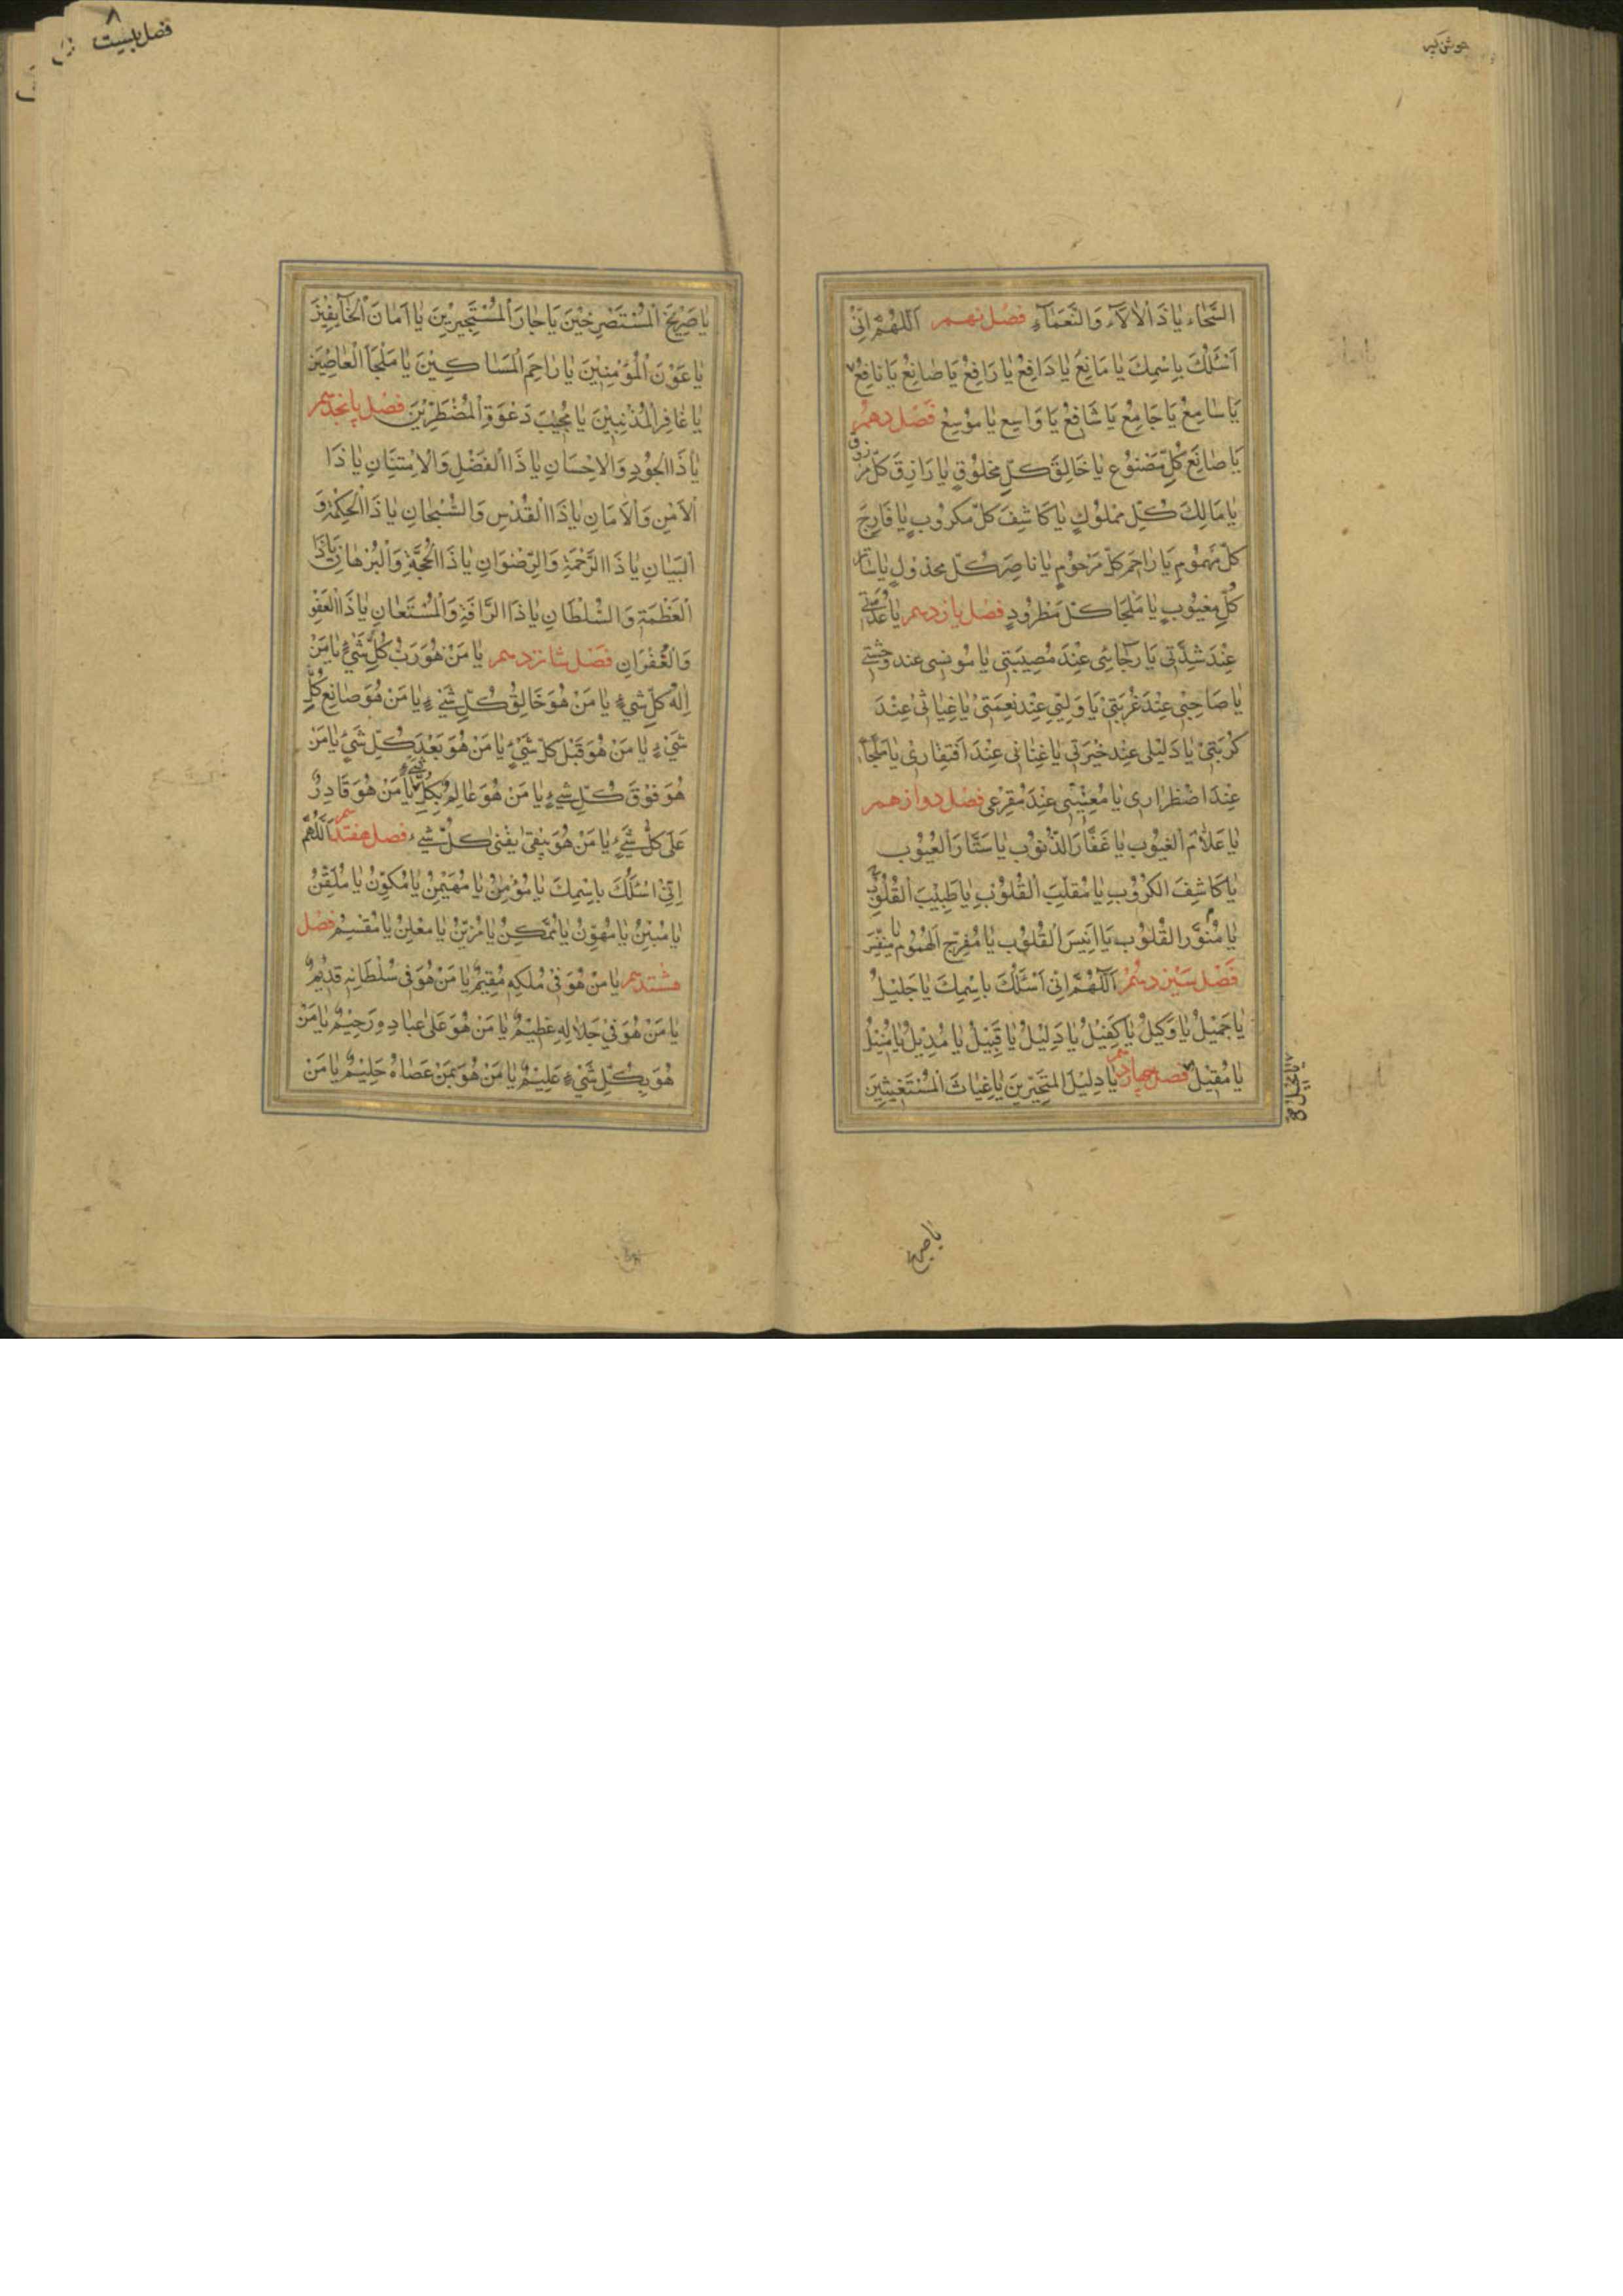 جوشن کبیر
السَّخَاءِ يَا ذَا الْاٰلَآءِ وَالنَّعْمَآءِ فصل نهم اَللّٰهُمَّ اِنِّيْ
اَسْئَلُكَ بِاسْمِكَ يَا مَانِعُ يَا دَافِعُ يَا رَافِعُ يَا صَانِعُ يَا نَافِعُ
يَا سَامِعُ يَا جَامِعُ يَا شَافِعُ يَا وَاسِعُ يَا مُوْسِعُ فصل دهم
يَا صَانِعَ كُلِّ مَصْنُوْعٍ يَا خَالِقَ كُلِّ مَخْلُوْقٍ يَا رَازِقَ كُلِّ مَرْزُوقٍ
يَا مَالِكَ كُلِّ مَمْلُوْكٍ يَا كَاشِفَ كُلِّ مَكْرُوْبٍ يَا فَارِجَ
كُلِّ مَهْمُوْمٍ يَا رَاحِمَ كُلِّ مَرْحُوْمٍ يَا نَاصِرَ كُلِّ مَخْذُوْلٍ يَا سَاتِرَ
كُلِّ مَعْيُوْبٍ يَا مَلْجَأَ كُلِّ مَطْرُوْدٍ فصل یازدهم يَا عُدَّتِيْ
عِنْدَ شِدَّتِيْ يَا رَجَائِيْ عِنْدَ مُصِيْبَتِيْ يَا مُونِسِيْ عِنْدَ وَحْشَتِيْ
يَا صَاحِبِيْ عِنْدَ غُرْبَتِيْ يَا وَلِيِّيْ عِنْدَ نِعْمَتِيْ يَا غِيَاثِيْ عِنْدَ
كُرْبَتِيْ يَا دَلِيْلِيْ عِنْدَ حَيْرَتِيْ يَا غِنَائِيْ عِنْدَ افْتِقَارِيْ يَا مَلْجَأِيْ
عِنْدَ اضْطِرَارِيْ يَا مُعِيْنِيْ عِنْدَ مَفْزَعِيْ فصل دوازدهم
يَا عَلَّامَ الْغُيُوْبِ يَا غَفَّارَ الذُّنُوْبِ يَا سَتَّارَ الْعُيُوْبِ
يَا كَاشِفَ الْكُرُوْبِ يَا مُقَلِّبَ الْقُلُوْبِ يَا طَبِيْبَ الْقُلُوْبِ
يَا مُنَوِّرَ الْقُلُوْبِ يَا اَنِيْسَ الْقُلُوْبِ يَا مُفَرِّجَ الْهُمُوْمِ يَا مُنَفِّسَ
فصل سیزدهم اَللّٰهُمَّ اِنِّيْ اَسْئَلُكَ بِاسْمِكَ يَا جَلِيْلُ
يَا جَمِيْلُ يَا وَكِيْلُ يَا كَفِيْلُ يَا دَلِيْلُ يَا قَبِيْلُ يَا مُدِيْلُ يَا مُنِيْلُ
يَا مُقِيْلُ فصل چهاردهم يَا دَلِيْلَ الْمُتَحَيِّرِيْنَ يَا غِيَاثَ الْمُسْتَغِيْثِيْنَ
يا محيل
يا صريخ
فصل بیست
يَا صَرِيْخَ الْمُسْتَصْرِخِيْنَ يَا جَارَ الْمُسْتَجِيْرِيْنَ يَا اَمَانَ الْخَآئِفِيْنَ
يَا عَوْنَ الْمُؤْمِنِيْنَ يَا رَاحِمَ الْمَسَاكِيْنَ يَا مَلْجَأَ الْعَاصِيْنَ
يَا غَافِرَ الْمُذْنِبِيْنَ يَا مُجِيْبَ دَعْوَةِ الْمُضْطَرِّيْنَ فصل پانجدهم
يَا ذَا الْجُوْدِ وَالْاِحْسَانِ يَا ذَا الْفَضْلِ وَالْاِمْتِنَانِ يَا ذَا
الْاَمْنِ وَالْاَمَانِ يَا ذَا الْقُدْسِ وَالسُّبْحَانِ يَا ذَا الْحِكْمَةِ وَ
الْبَيَانِ يَا ذَا الرَّحْمَةِ وَالرِّضْوَانِ يَا ذَا الْحُجَّةِ وَالْبُرْهَانِ يَا ذَا
الْعَظَمَةِ وَالسُّلْطَانِ يَا ذَا الرَّافَةِ وَالْمُسْتَعَانِ يَا ذَا الْعَفْوِ
وَالْغُفْرَانِ فصل شانزدهم يَا مَنْ هُوَ رَبُّ كُلِّ شَيْءٍ يَا مَنْ
اِلٰهُ كُلِّ شَيْءٍ يَا مَنْ هُوَ خَالِقُ كُلِّ شَيْءٍ يَا مَنْ هُوَ صَانِعُ كُلِّ
شَيْءٍ يَا مَنْ هُوَ قَبْلَ كُلِّ شَيْءٍ يَا مَنْ هُوَ بَعْدَ كُلِّ شَيْءٍ يَا مَنْ
هُوَ فَوْقَ كُلِّ شَيْءٍ يَا مَنْ هُوَ عَالِمٌ بِكُلِّ شَيْءٍ يَا مَنْ هُوَ قَادِرٌ
عَلٰى كُلِّ شَيْءٍ يَا مَنْ هُوَ يَبْقٰى يَفْنٰى كُلُّ شَيْءٍ فصل هفتدهم اَللّٰهُمَّ
اِنِّيْ اَسْئَلُكَ بِاسْمِكَ يَا مُؤْمِنُ يَا مُهَيْمِنُ يَا مُكَوِّنُ يَا مُلَقِّنُ
يَا مُبَيِّنُ يَا مُهَوِّنُ يَا مُمَكِّنُ يَا مُزَيِّنُ يَا مُعْلِنُ يَا مُقَسِّمُ فصل
هشتدهم يَا مَنْ هُوَ فِيْ مُلْكِهٖ مُقِيْمٌ يَا مَنْ هُوَ فِيْ سُلْطَانِهٖ قَدِيْمٌ
يَا مَنْ هُوَ فِيْ جَلَالِهٖ عَظِيْمٌ يَا مَنْ هُوَ عَلٰى عِبَادِهٖ رَحِيْمٌ يَا مَنْ
هُوَ بِكُلِّ شَيْءٍ عَلِيْمٌ يَا مَنْ هُوَ بِمَنْ عَصَاهُ حَلِيْمٌ يَا مَنْ